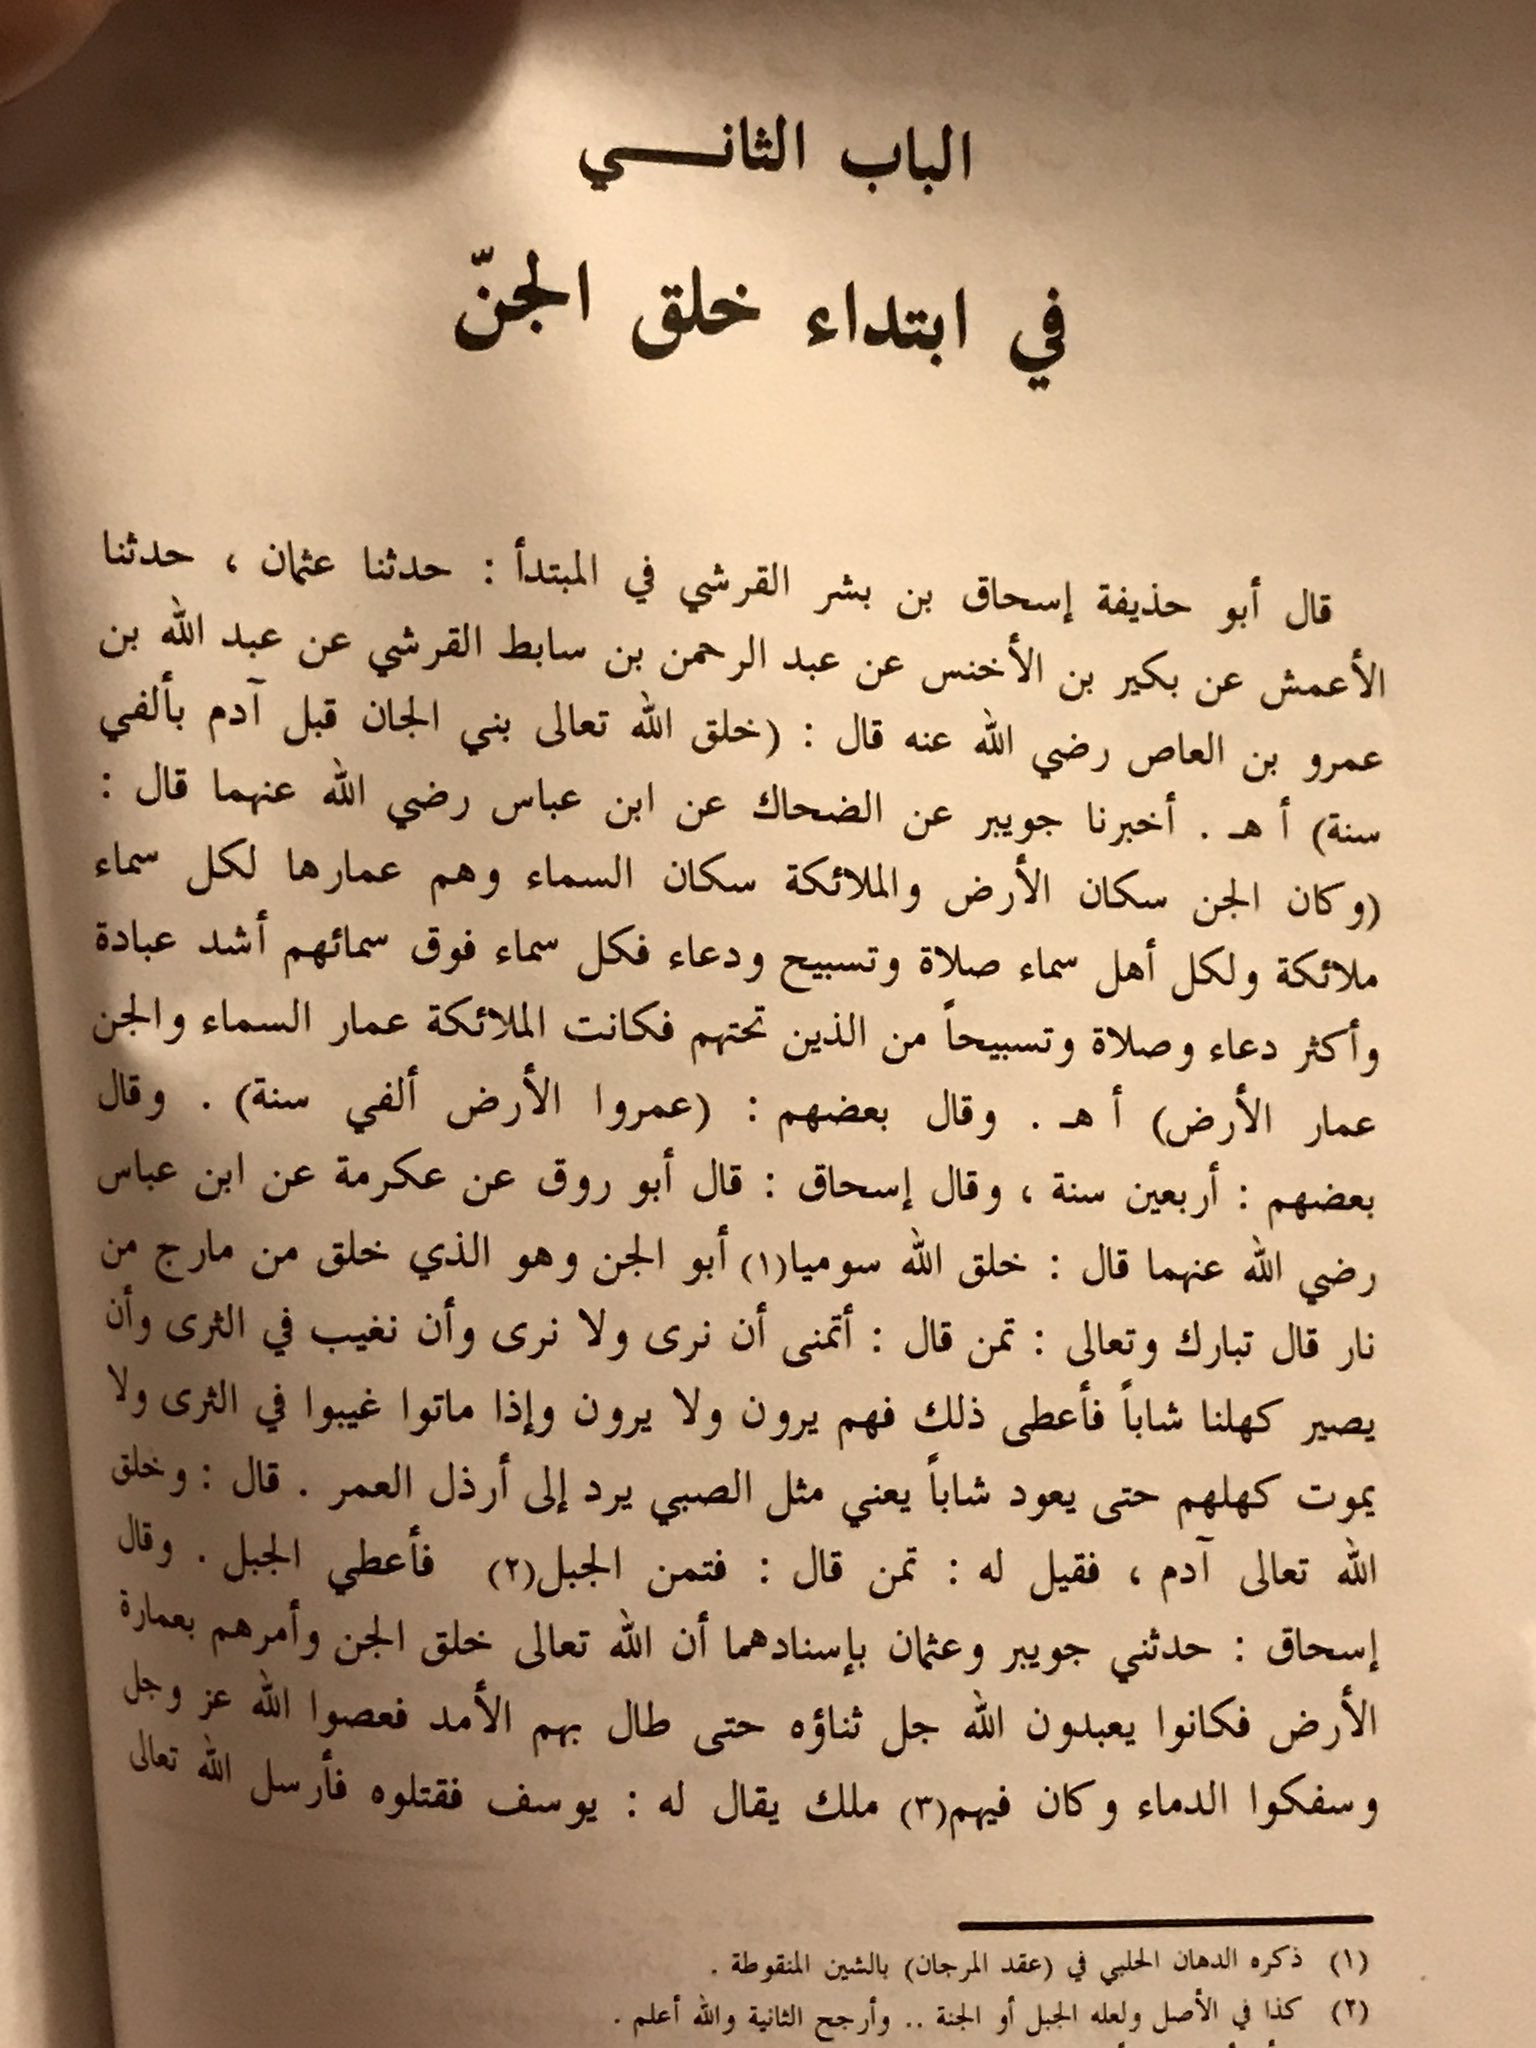 الباب الثانـــي
في ابتداء خلق الجنّ
قال أبو حذيفة إسحاق بن بشر القرشي في المبتدأ : حدثنا عثمان ، حدثنا
الأعمش عن بكير بن الأخنس عن عبد الرحمن بن سابط القرشي عن عبد الله بن
عمرو بن العاص رضي الله عنه قال : (خلق الله تعالى بني الجان قبل آدم بألفي
سنة) أ هـ . أخبرنا جويبر عن الضحاك عن ابن عباس رضي الله عنهما قال :
(وكان الجن سكان الأرض والملائكة سكان السماء وهم عمارها لكل سماء
ملائكة ولكل أهل سماء صلاة وتسبيح ودعاء فكل سماء فوق سمائهم أشد عبادة
وأكثر دعاء وصلاة وتسبيحاً من الذين تحتهم فكانت الملائكة عمار السماء والجن
عمار الأرض) أ هـ . وقال بعضهم : (عمروا الأرض ألفي سنة) . وقال
بعضهم : أربعين سنة ، وقال إسحاق : قال أبو روق عن عكرمة عن ابن عباس
رضي الله عنهما قال : خلق الله سوميا(١) أبو الجن وهو الذي خلق من مارج من
نار قال تبارك وتعالى : تمن قال : أتمنى أن نرى ولا نرى وأن نغيب في الثرى وأن
يصير كهلنا شاباً فأعطى ذلك فهم يرون ولا يرون وإذا ماتوا غيبوا في الثرى ولا
يموت كهلهم حتى يعود شاباً يعني مثل الصبي يرد إلى أرذل العمر . قال : وخلق
الله تعالى آدم ، فقيل له : تمن قال : فتمن الجبل(٢) فأعطي الجبل . وقال
إسحاق : حدثني جويبر وعثمان بإسنادهما أن الله تعالى خلق الجن وأمرهم بعمارة
الأرض فكانوا يعبدون الله جل ثناؤه حتى طال بهم الأمد فعصوا الله عز وجل
وسفكوا الدماء وكان فيهم(٣) ملك يقال له : يوسف فقتلوه فأرسل الله تعالى
(١) ذكره الدهان الحلبي في (عقد المرجان) بالشين المنقوطة .
(٢) كذا في الأصل ولعله الجبل أو الجنة .. وأرجح الثانية والله أعلم .